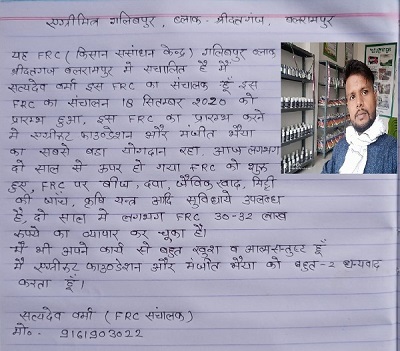 एग्रीमित्र गालिबपुर, ब्लाक- श्रीदतगंज, बलरामपुर
यह FRC (किसान संसाधन केन्द्र) गालिबपुर ब्लाक
श्रीदतगंज बलरामपुर में संचालित है मैं
सत्यदेव वर्मा इस FRC का संचालक हूँ इस
FRC का संचालन 18 सितम्बर 2020 को
प्रारम्भ हुआ, इस FRC का प्रारम्भ करने
में एग्रीरूट फाउण्डेशन और मंजीत भैया
का सबसे बड़ा योगदान रहा, आज लगभग
दो साल से ऊपर हो गया FRC को शुरू
हुए, FRC पर बीज, दवा, जैविक खाद, मिट्टी
की जांच, कृषि यन्त्र आदि सुविधाये उपलब्ध
है, दो साल में लगभग FRC 30-32 लाख
रूपये का व्यापार कर चुका है।
मैं भी अपने कार्य से बहुत खुश व आत्मसन्तुष्ट हूँ
मैं एग्रीरूट फाउण्डेशन और मंजीत भैया को बहुत-2 धन्यवाद
करता हूँ।
सत्यदेव वर्मा (FRC संचालक)
मो०. 9161903022